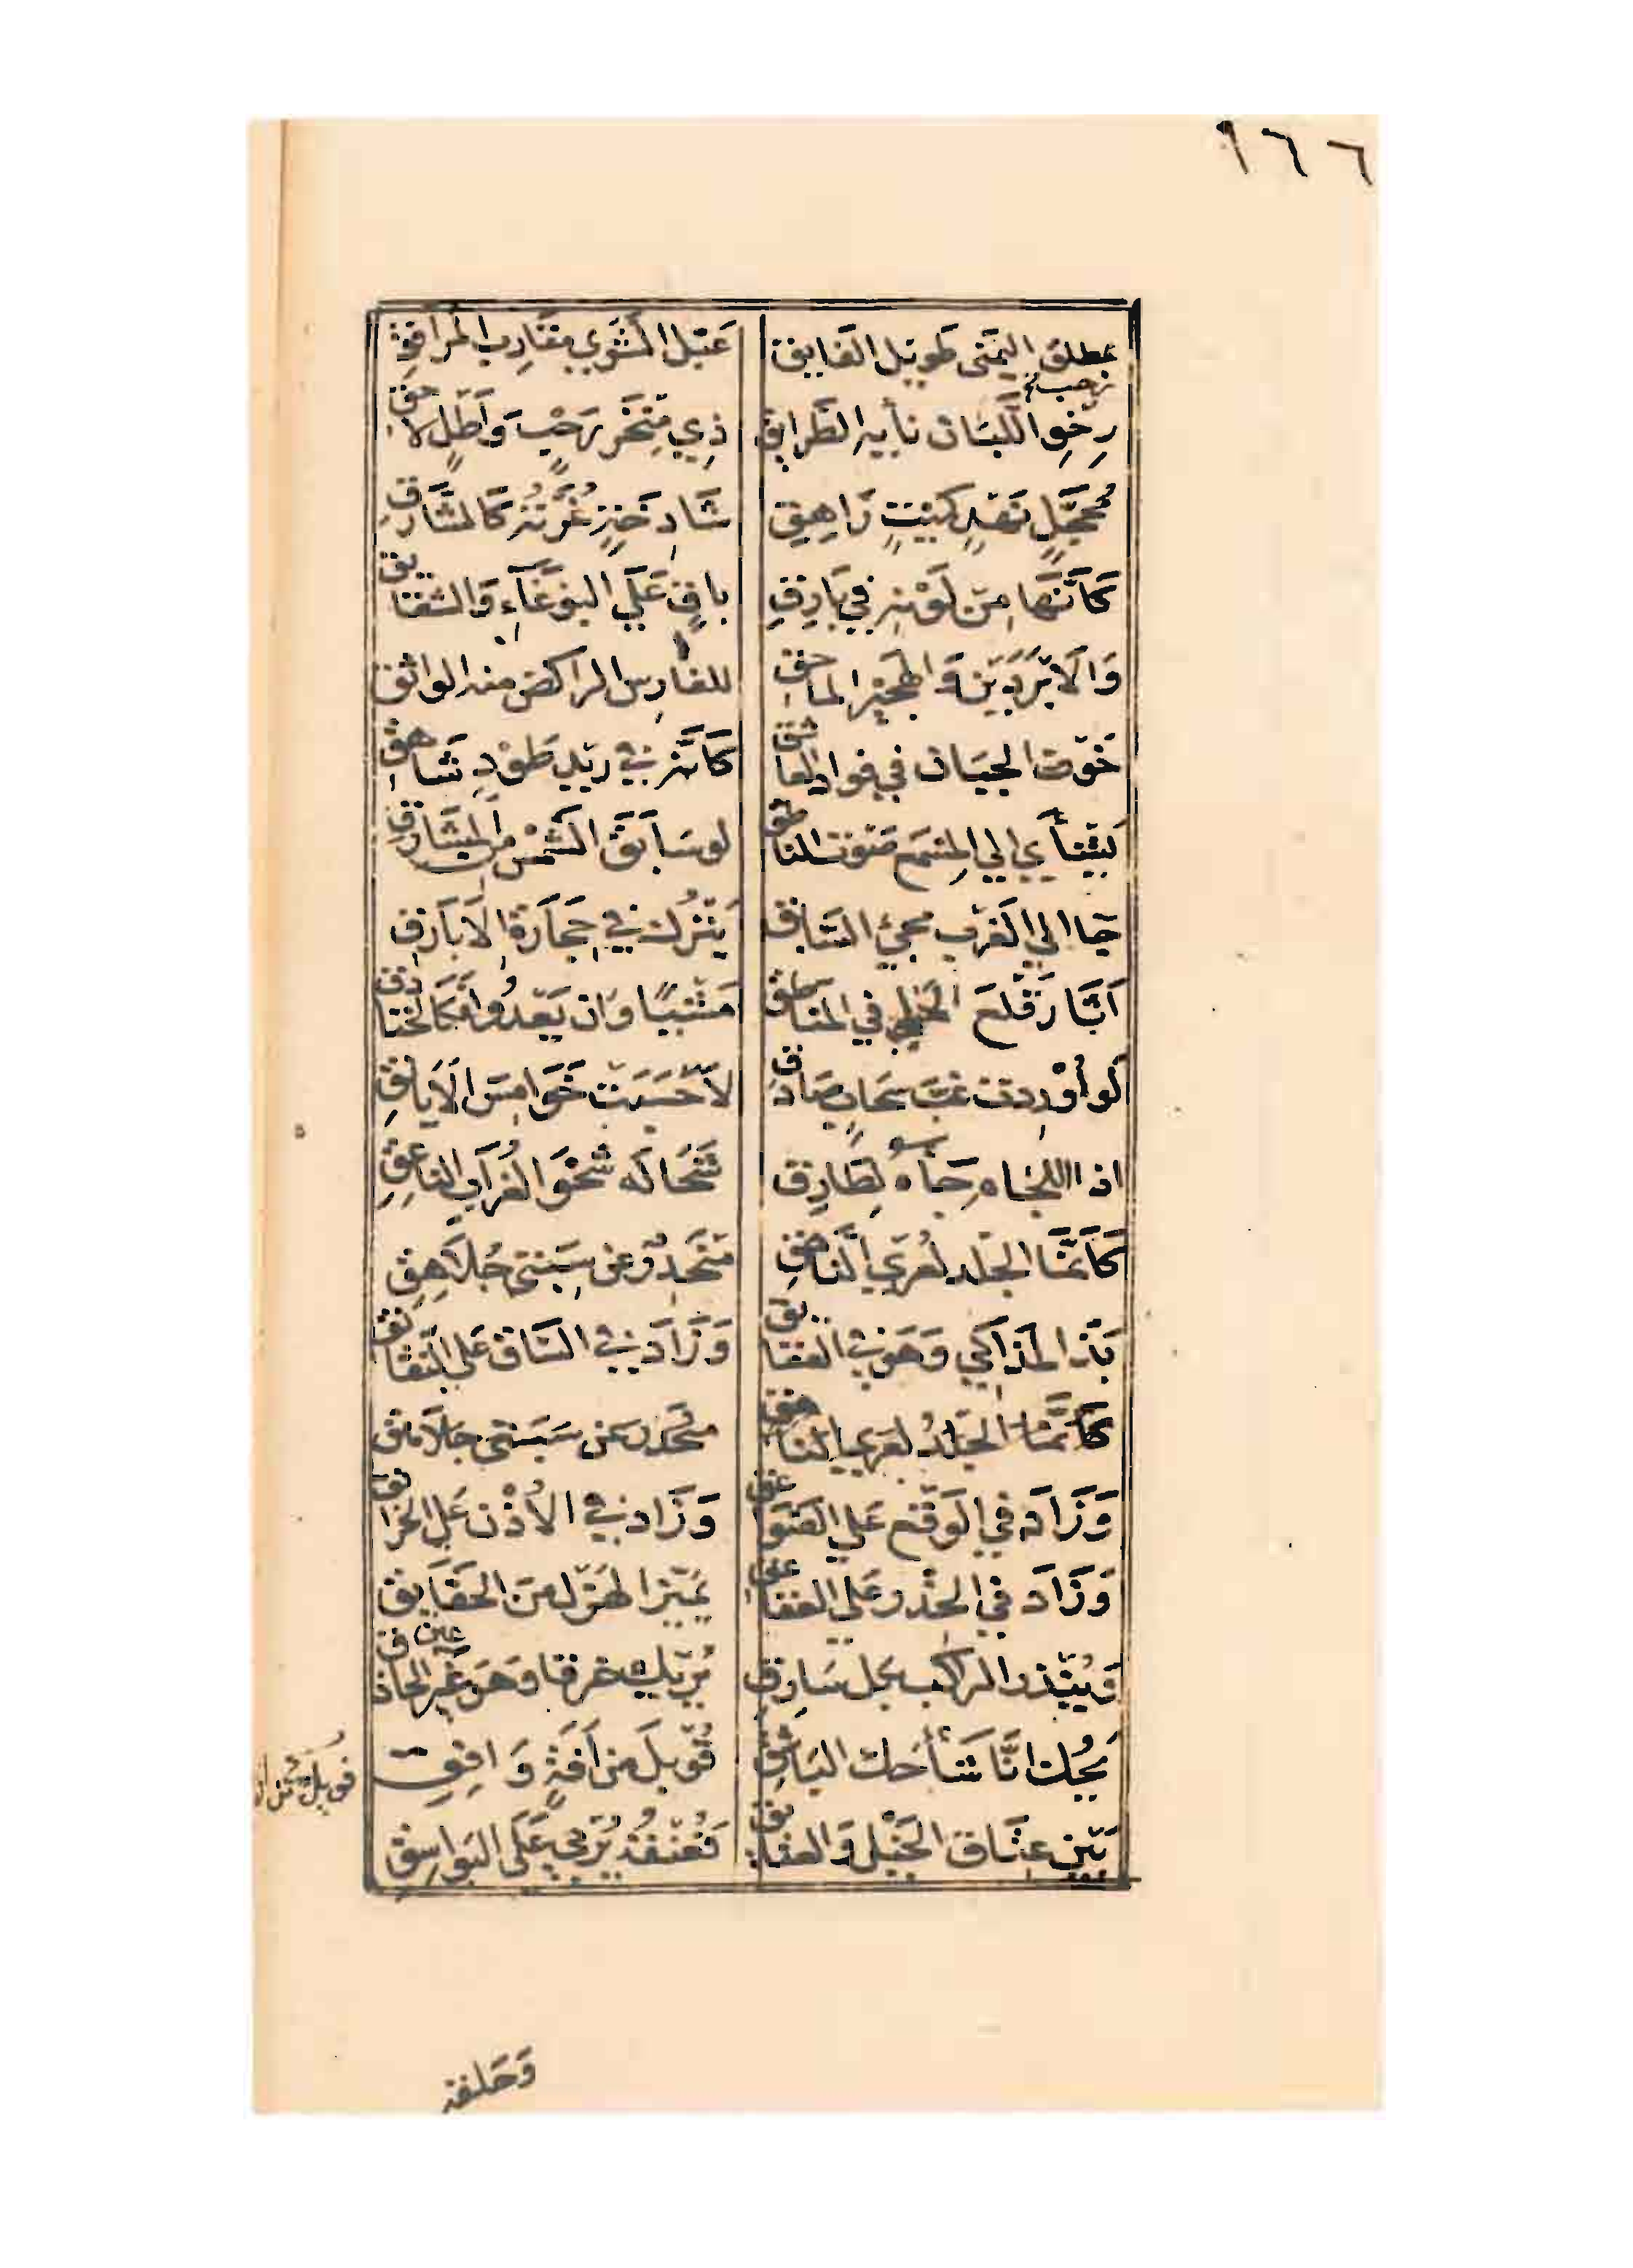 ١٦٦
بمطلق اليمنى طويل الفايق عبل الشوي مقارب المرافق
رحب
رخو اللبان نايه الطرايق ذي منخر رحب واطل لاحق
محجل نهد كميت زاهق شادخة غرته كالشارق
كانها من لونه في بارق باق على البوغاء والشقايق
والابردين والهجير الماحق للفارس الراكض منه الواثق
خوف الجبان في فواد العاشق كانه في ريد طود شاهق
يشأى الى المسمع صوت الناطق لو سابق الشمس من المشارق
جا الى الغرب مجئ السابق يترك في حجارة الابارق
اثار قلع الحلي في المناطق مشيا وان يعدو فكالخنادق
لو اوردت غب سحاب صادق لاحسبت خوامس الايانق
اذا اللجام جاه لطارق شحا له شحو الغراب الناعق
كانما الجلد لعري الناهق منحدر عن سيتي جلاهق
بذ المذاكي وهو في العقايق وزاد في الساق على النقانق
كانما الجلد لعري الناهق منحدر عن سيتي جلاهق
وزاد في الوقع على الصواعق وزاد في الاذن على الخرانق
وزاد في الحذر على العقاعق يميز الهزل من الحقايق
وينذر الركب بكل سارق يريك خرقا وهو عين الحاذق
يحك انا شا حك الباشق قوبل من افة وافق
قوبل من ا
بين عتاق الخيل والعتايق فعنقه يربي على البواسق
وحلقه